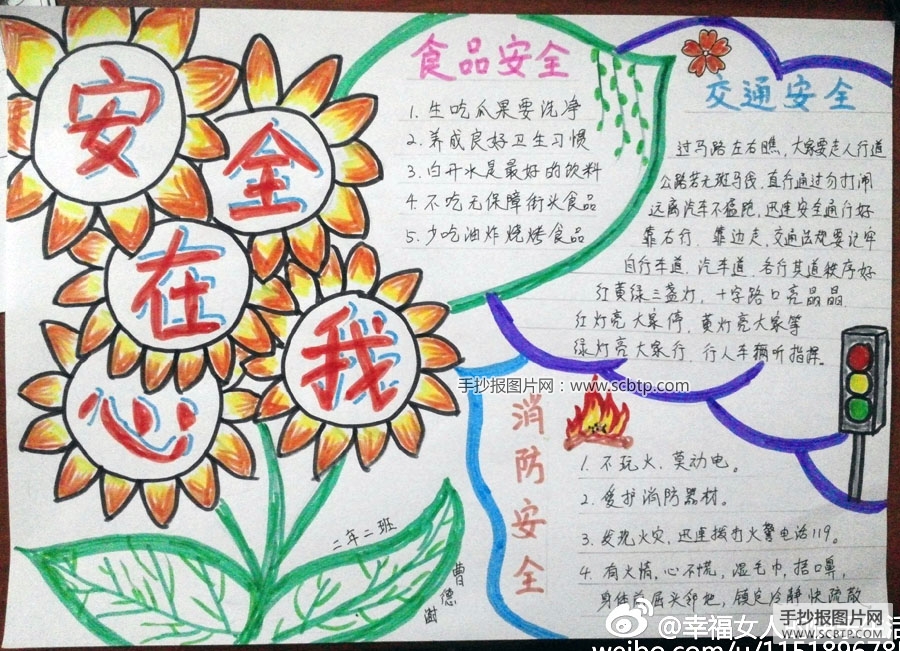 安
全
在
我
心
食品安全
1.生吃瓜果要洗净
2.养成良好卫生习惯
3.白开水是最好的饮料
4.不吃无保障街头食品
5.少吃油炸烧烤食品
交通安全
过马路左右瞧,大家要走人行道
公路若无斑马线,直行通过勿打闹
远离汽车不猛跑,迅速安全通行好
靠右行,靠边走,交通法规要记牢
自行车道,汽车道,各行其道秩序好
红黄绿三盏灯,十字路口亮晶晶
红灯亮大家停,黄灯亮大家等
绿灯亮大家行,行人车辆听指挥。
手抄报图片网:www.scbtp.com
消防安全
1.不玩火,莫动电。
2.爱护消防器材。
3.发现火灾,迅速拨打火警电话119。
4.有火情,心不慌,湿毛巾,捂口鼻,
身体前屈头邻地,镇定冷静快疏散
二年二班
曹德澍
手抄报图片网
WWW.SCBTP.COM
@幸福女人
weibo.com/u/1151896785